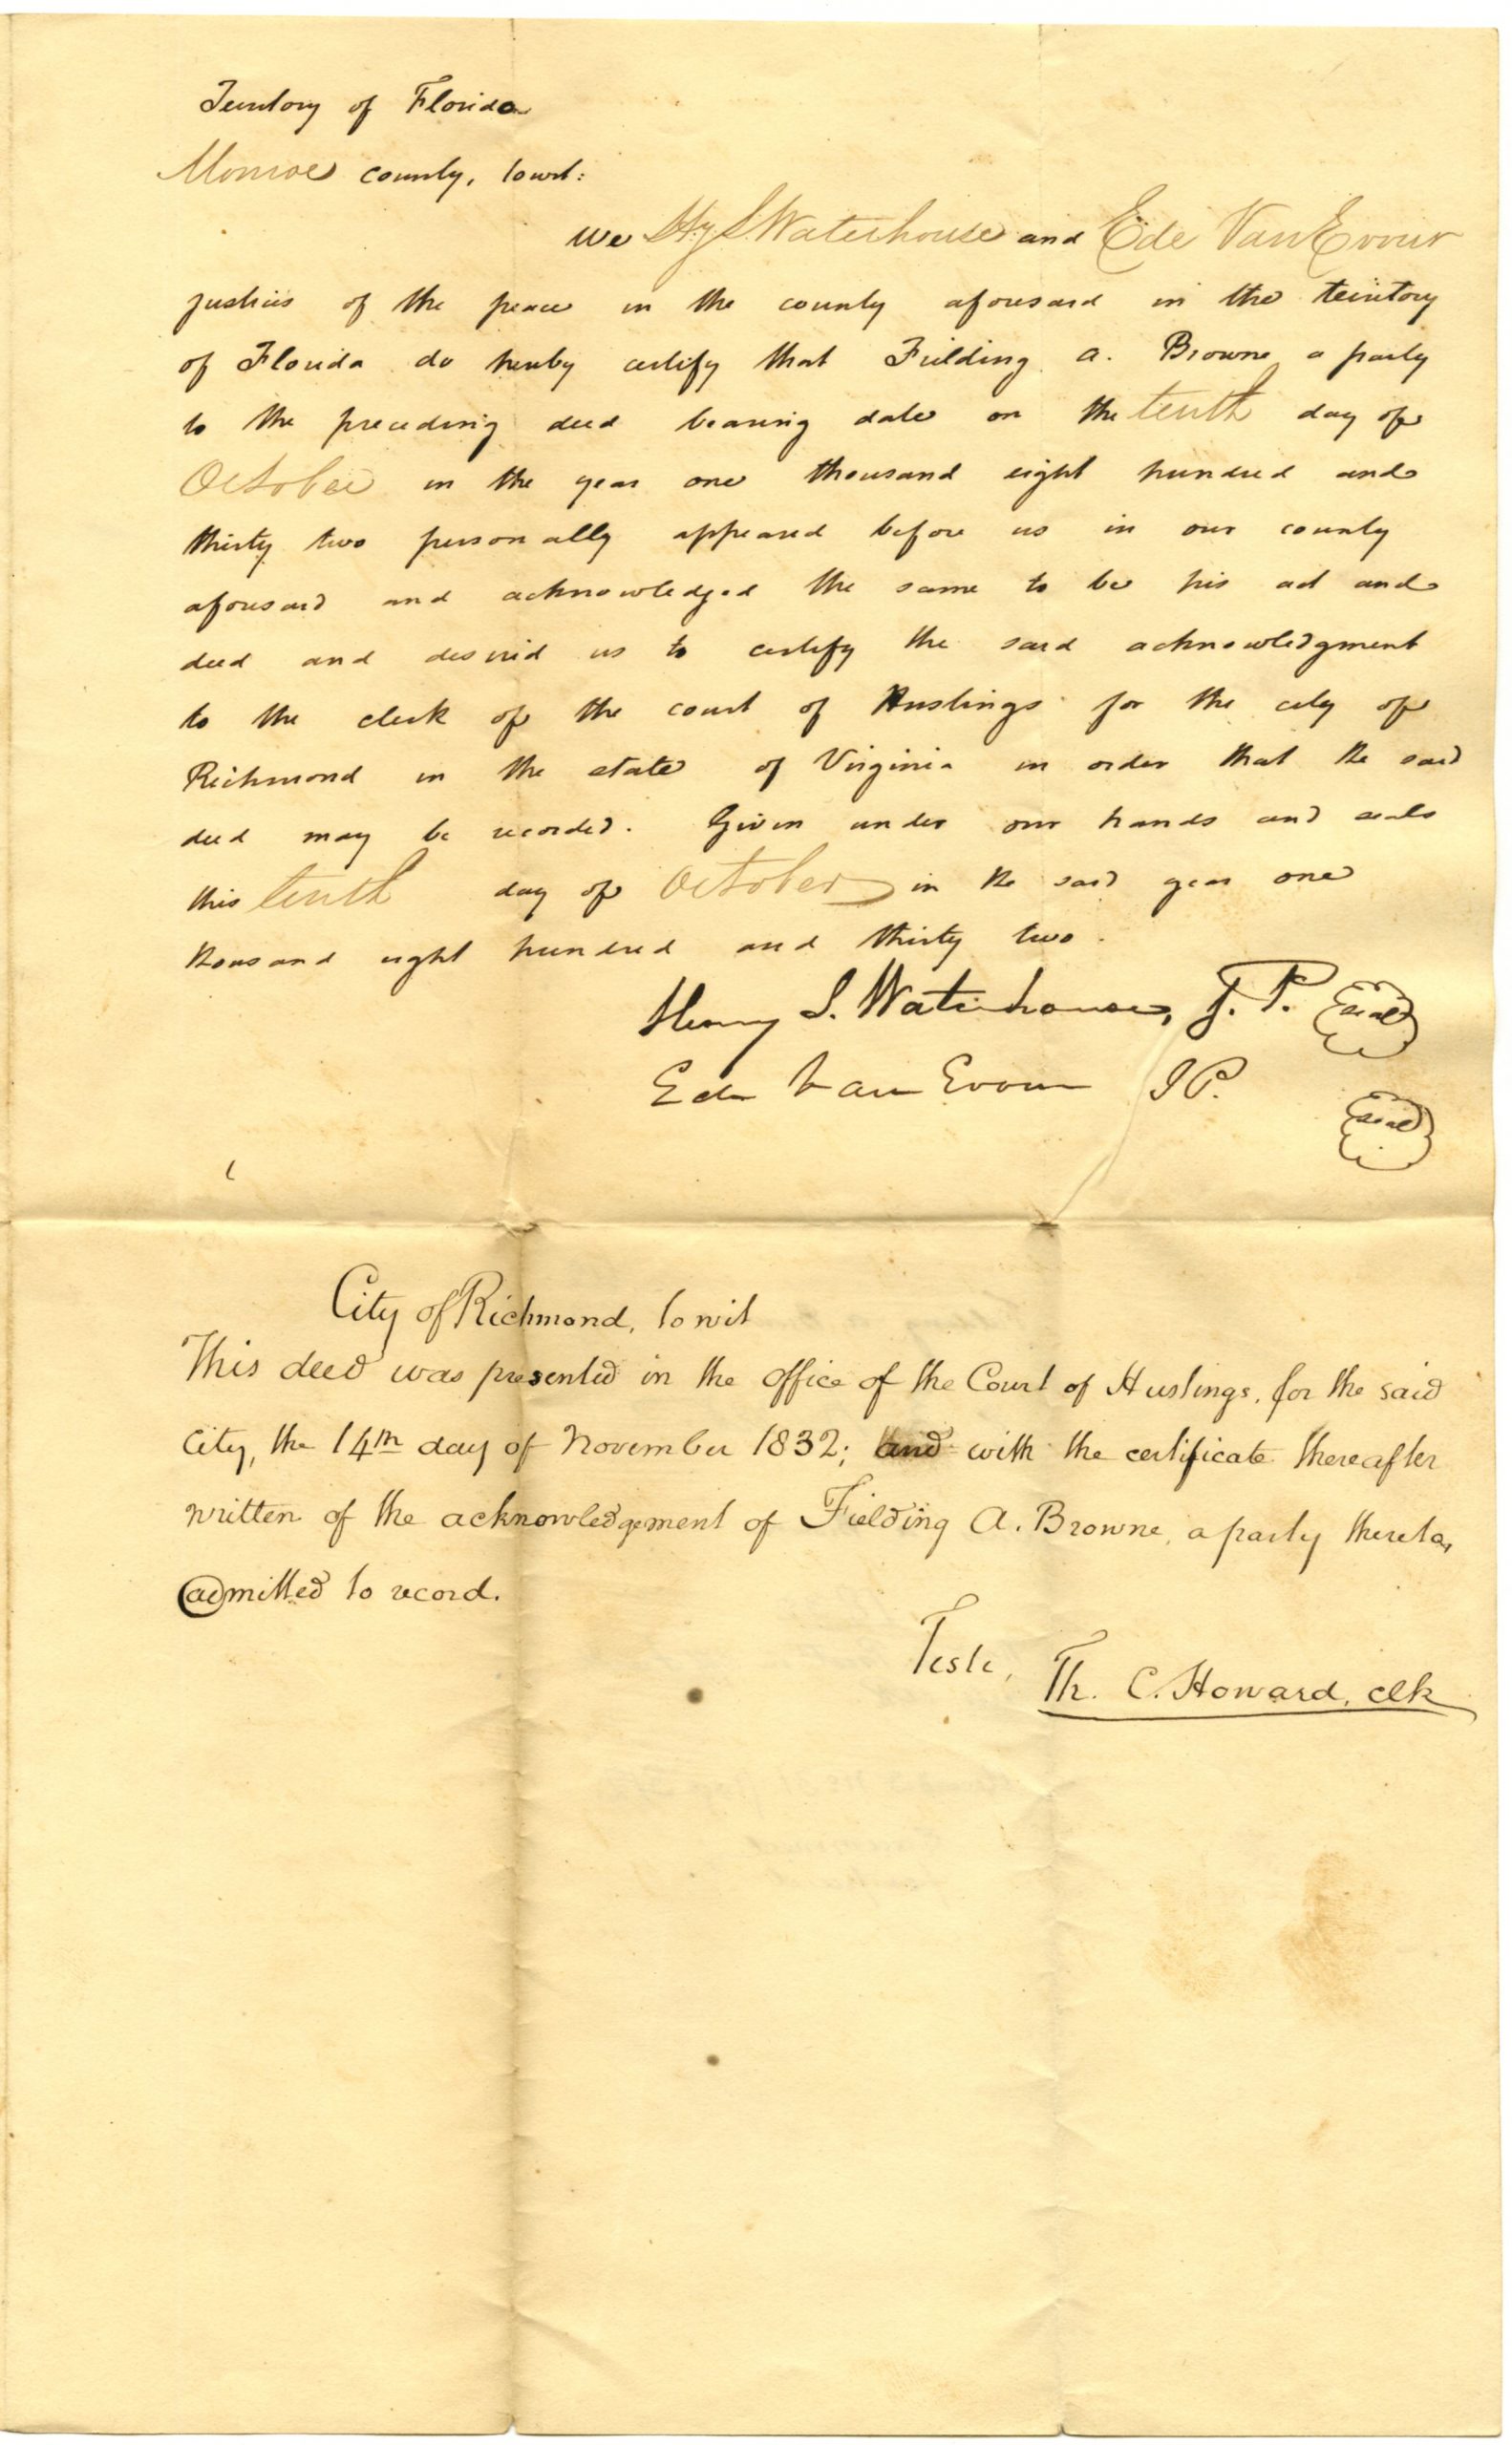 Territory of Florida
Monroe county, towit:
We Hy S. Waterhouse and Ede Van Evour
justices of the peace in the county aforesaid in the territory
of Florida do hereby certify that Fielding A. Browne a party
to the preceding deed bearing date on the tenth day of
October in the year one thousand eight hundred and
thirty two personally appeared before us in our county
aforesaid and acknowledged the same to be his act and
deed and desired us to certify the said acknowledgment
to the clerk of the court of Hustings for the city of
Richmond in the state of Virginia in order that the said
deed may be recorded. Given under our hands and seals
this tenth day of October in the said year one
thousand eight hundred and thirty two.
Henry S. Waterhouse, J. P. Seal
Ede Van Evour J P. Seal
City of Richmond, to wit
This deed was presented in the office of the Court of Hustings, for the said
City, the 14th day of November 1832; and with the certificate thereafter
written of the acknowledgement of Fielding A. Browne, a party thereto,
admitted to record.
Teste,
Th. C. Howard, clk